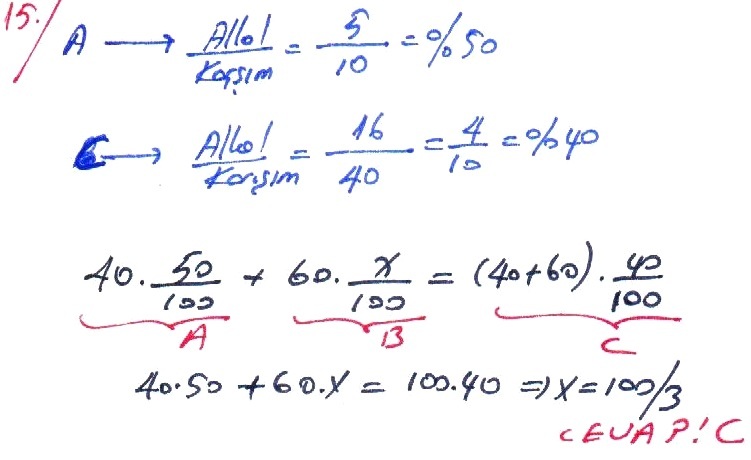 15./ A → Alkol/Karışım = 5/10 = %50
C → Alkol/Karışım = 16/40 = 4/10 = %40
40 . 50/100 + 60 . x/100 = (40+60) . 40/100
A B C
40.50 + 60.x = 100.40 ⇒ x = 100/3
CEVAP! C